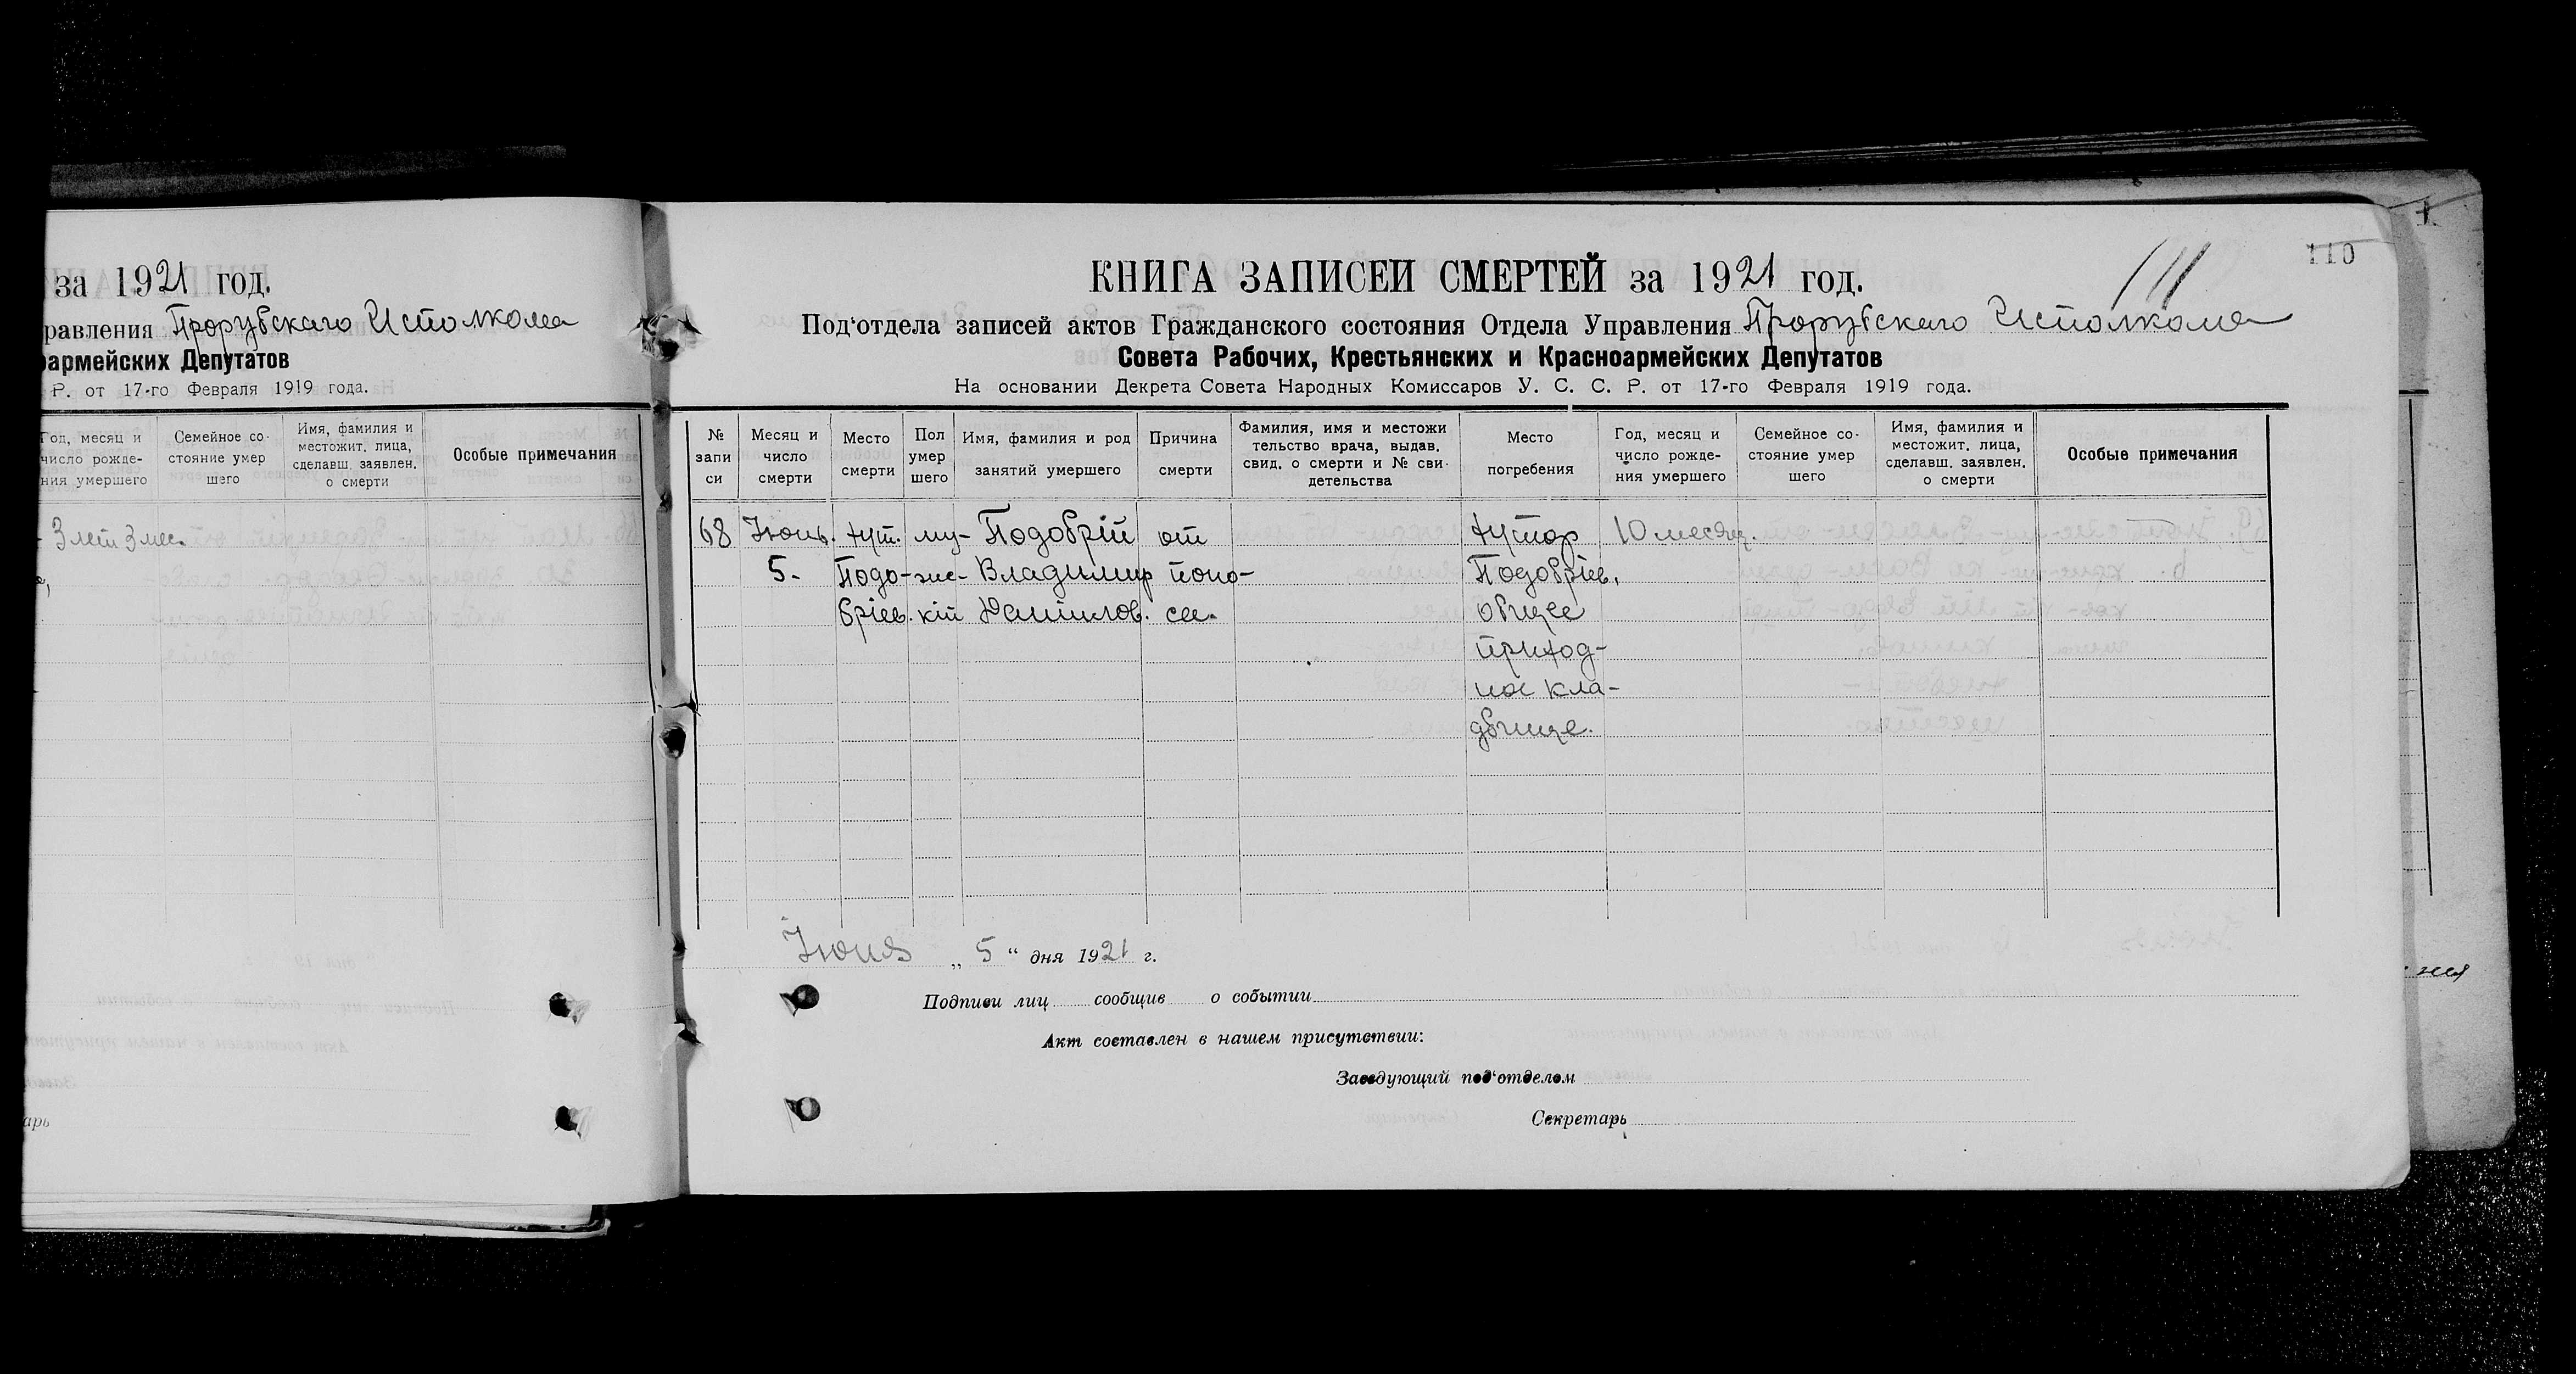 за 1921 год.
равления Прорубскаго Исполкома
оармейских Депутатов
Р. от 17-го Февраля 1919 года.
Год, месяц и
число рожде-
ния умершего
Семейное со-
стояние умер
шего
Имя, фамилия и
местожит. лица,
сделавш. заявлен.
о смерти
Особые примечания
3 лет 3 мес.
арь
110
111
КНИГА ЗАПИСЕЙ СМЕРТЕЙ за 1921 год.
Под'отдела записей актов Гражданского состояния Отдела Управления Прорубскаго Исполкома
Совета Рабочих, Крестьянских и Красноармейских Депутатов
На основании Декрета Совета Народных Комиссаров У. С. С. Р. от 17-го Февраля 1919 года.
№
запи
си
Месяц и
число
смерти
Место
смерти
Пол
умер
шего
Имя, фамилия и род
занятий умершего
Причина
смерти
Фамилия, имя и местожи
тельство врача, выдав.
свид. о смерти и № сви-
детельства
Место
погребения
Год, месяц и
число рожде-
ния умершего
Семейное со-
стояние умер
шего
Имя, фамилия и
местожит. лица,
сделавш. заявлен.
о смерти
Особые примечания
68
Июнь.
5.
хут.
Подо-
бріев.
му-
жс-
кій
Подобрій
Владимир
Данилов.
от
поно-
са.
хутор
Подобріев,
общее
приход-
ное кла-
дбище.
10 месяц.
Июня „ 5 “ дня 1921 г.
Подписи лиц сообщив о событии
Акт составлен в нашем присутствии:
Заведующий под'отделом
Секретарь